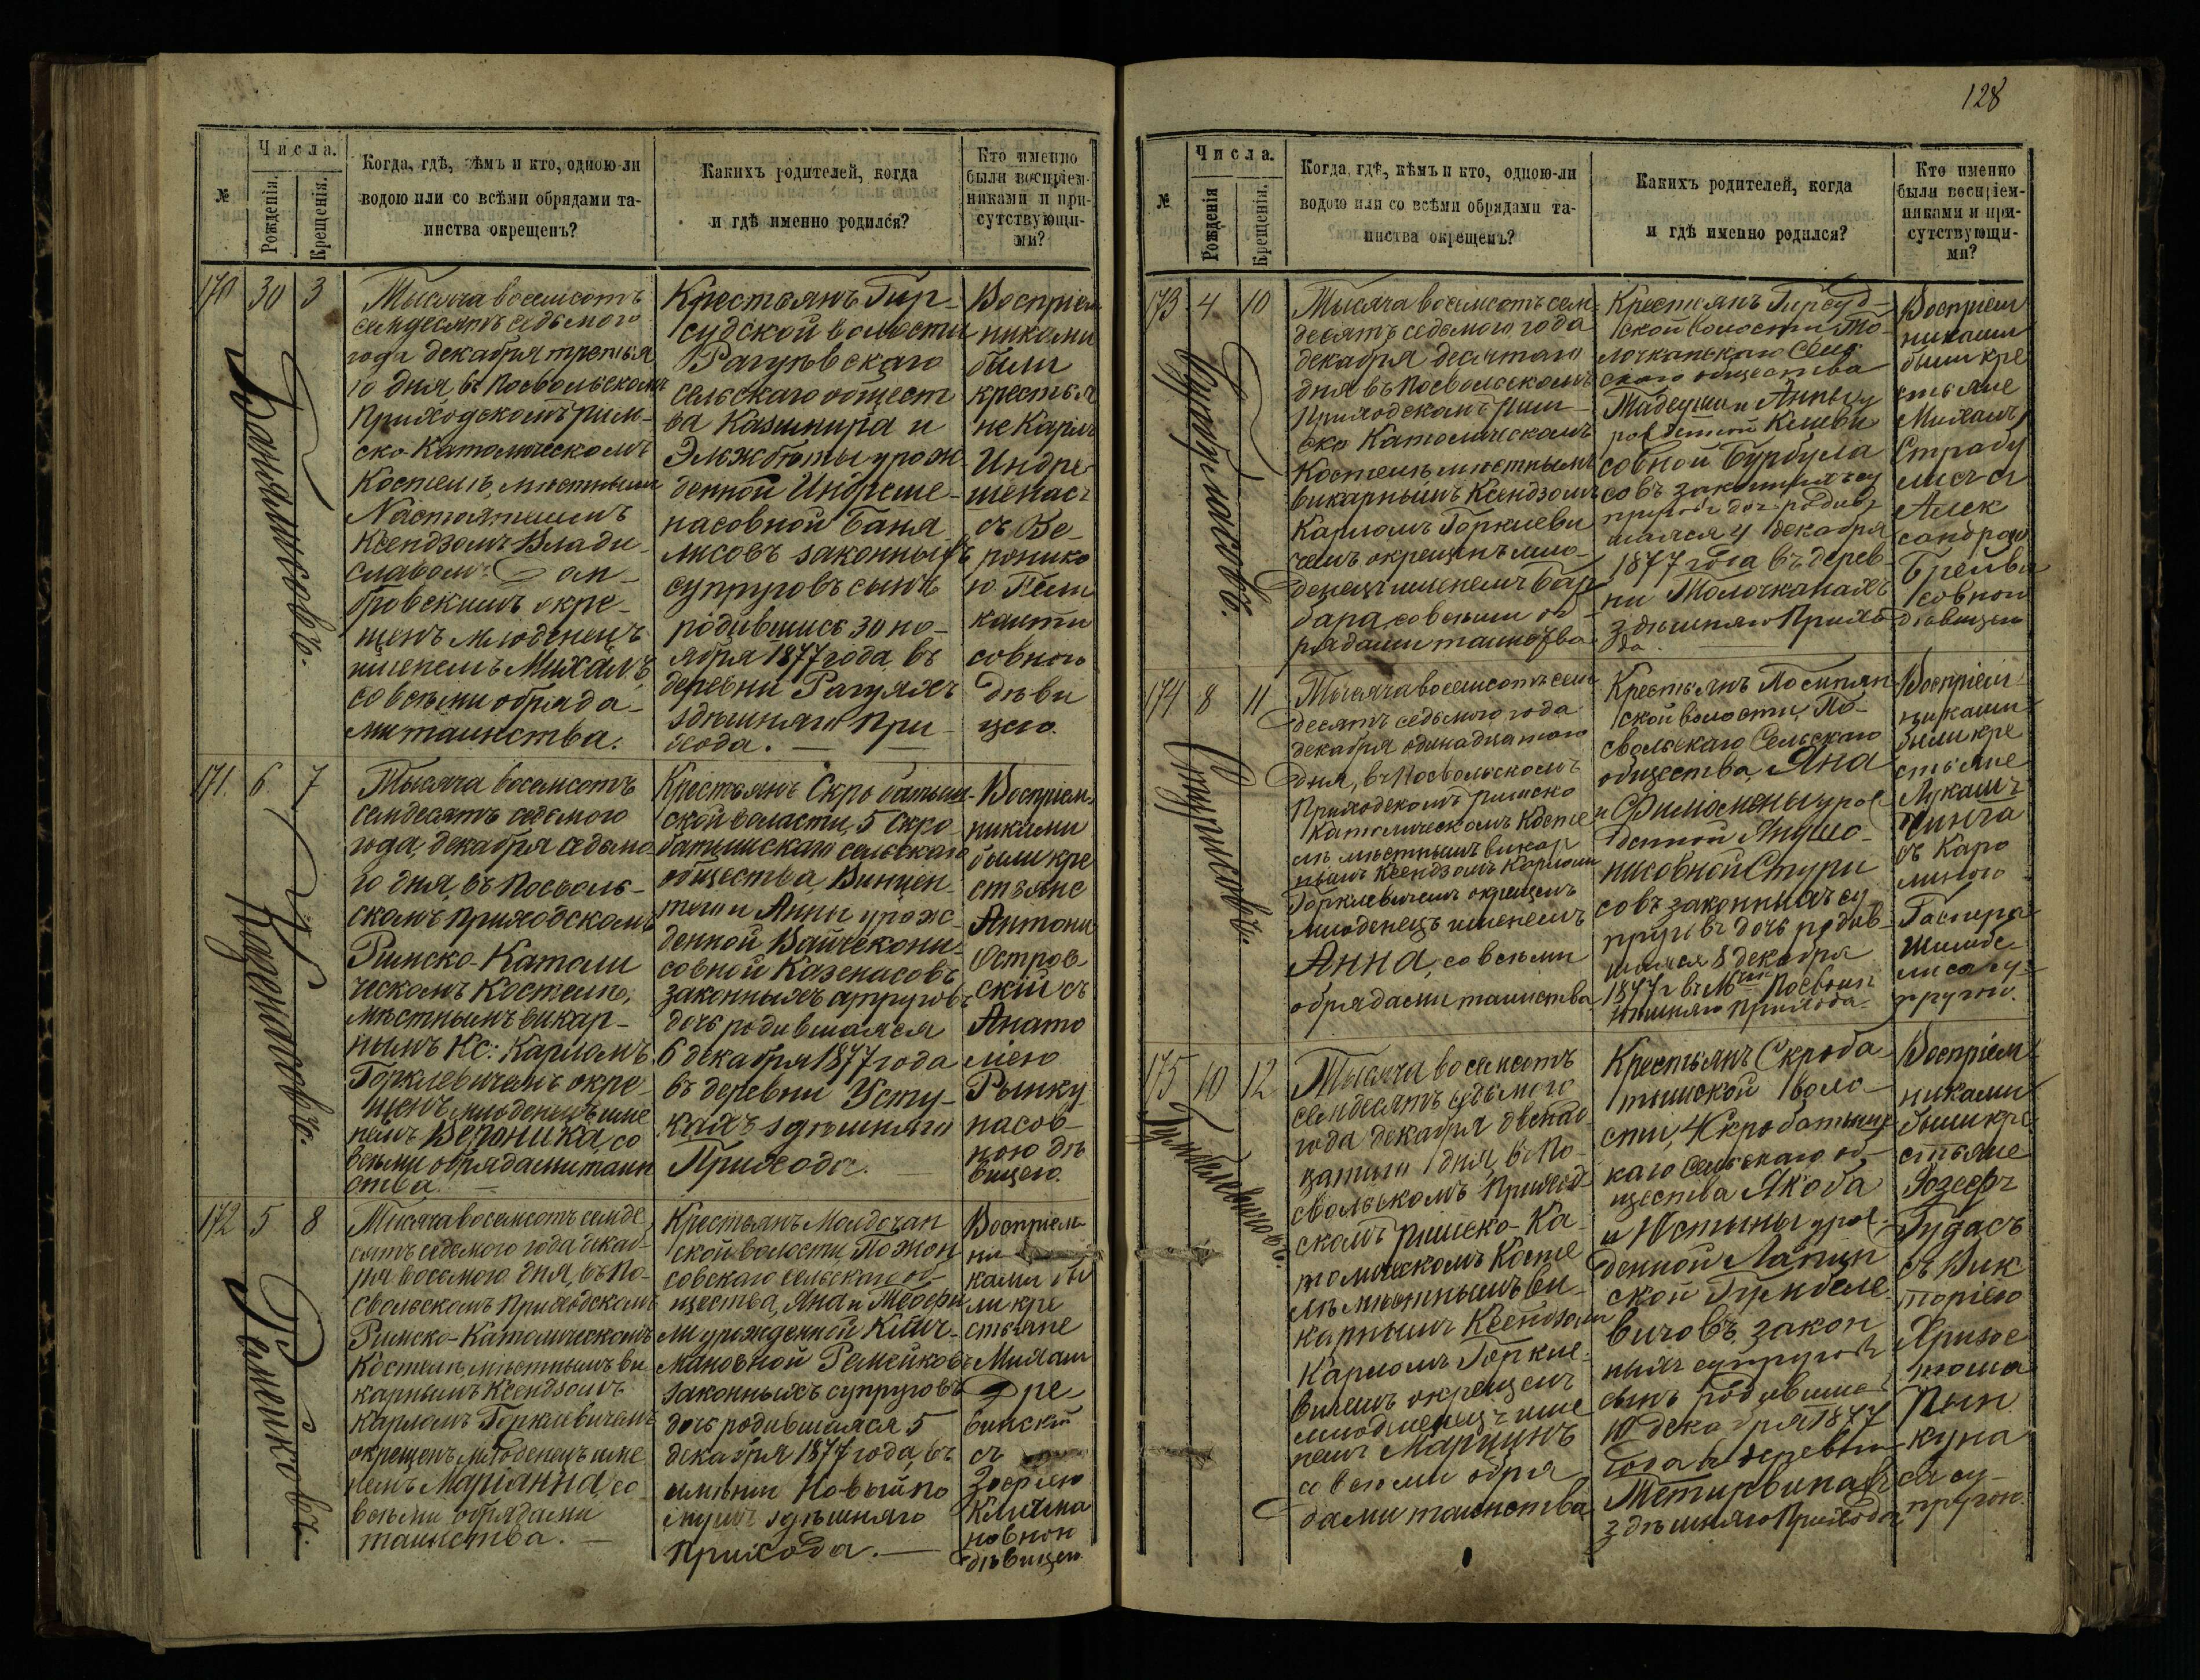 №
Числа.
Рожденія.
Крещенія.
Когда, гдѣ, кѣмъ и кто, одною-ли
водою или со всѣми обрядами та-
инства окрещенъ?
Какихъ родителей, когда
и гдѣ именно родился?
Кто именно
были воспріем-
никами и при-
сутствующи-
ми?
170
30
3
Тысяча восемсотъ
семдесятъ седьмого
года декабря третья
го дня, въ Посвольскомъ
Приходскомъ рим-
ско-Католическомъ
Костелѣ, мѣстнымъ
Настоятелемъ
Ксендзомъ Влади-
славомъ Дом-
бровскимъ окре-
щенъ младенецъ
именемъ Михаилъ
со всѣми обряда-
ми таинства.
Крестьянъ Гир-
судской волости
сельскаго общест
ва Казимира и
Эльжбеты урож-
денной Индреше-
насовной Баня
лисовъ законныхъ
супруговъ сынъ
родившись 30 но-
ября 1877 года, въ
деревни Рагуляхъ
здѣшняго При-
хода.
Воспріем
никами
были
крестья
не Карлъ
Индре-
шенасъ
съ Ве-
роніко
совною
дѣви
цею.
171.
6
7
Казенасовъ.
Тысяча восемсотъ
семдесятъ седьмого
года, декабря седьма
го дня, въ Посволь-
скомъ Приходскомъ
Римско-Католи
ческомъ Костелѣ,
мѣстнымъ викар-
нымъ Кс: Карломъ
Горклевичемъ окре-
щенъ младенецъ име
немъ Вероника, со
всѣми обрядами таин
ства.
Крестьянъ Скробатыш-
ской волости, 5 Скро
батышскаго сельскаго
общества, Винцен-
тего и Анны урож-
денной Вайчекони-
совной Казенасовъ
законныхъ супруговъ
дочь родившаяся
6 декабря 1877 года
въ деревни Усту-
кахъ здѣшняго
Прихода.
Воспріем
никами
были кре
стьяне
Антоній
Остров-
скій съ
Анато
ліею
Рынку
насов-
ною дѣ
вицею.
172
5
8
Ремейковъ.
Тысяча восемсотъ семде
сятъ седьмого года декаб-
ря восьмого дня, въ По-
свольскомъ Приходскомъ
Римско-Католическомъ
Костелѣ, мѣстнымъ ви
карнымъ Ксендзомъ
Карломъ Горклевичемъ
окрещенъ младенецъ име
немъ Маріанна, со
всѣми обрядами
таинства.
ской волости
совскаго сельскаго об-
щества, Яна и Теофи
ли урожденной Клич-
мановной Ремейковъ
законныхъ супруговъ
дочь родившаяся 5
декабря 1877 года, въ
имѣніи Новый по
здѣшняго
Прихода.
Воспріем-
ни
ками бы
ли кре
стьяне
Михаил
Дре
винскій
съ
Зофіею
новной
дѣвицею
128
№
Числа.
Рожденія
Крещенія.
Когда, гдѣ, кѣмъ и кто, одною-ли
водою или со всѣми обрядами та-
инства окрещенъ?
Какихъ родителей, когда
и гдѣ именно родился?
Кто именно
были воспріем-
никами и при-
сутствующи-
ми?
173
4
10
Бурбуласовъ.
Тысяча восемсотъ сем
десятъ седьмого года
декабря десятаго
дня въ Посвольскомъ
Приходскомъ Рим-
ско Католическомъ
Костелѣ, мѣстнымъ
викарнымъ Ксендзомъ
Карломъ Горклеви
чемъ окрещенъ мла-
денецъ именемъ Бар
бара со всѣми об-
рядами таинства
Крестьянъ Гирсуд-
ской волости То-
лочканскаго Сель
скаго общества
совной Бурбула
совъ законныхъ су
пруговъ дочь родив
шаяся 4 декабря
1877 года въ дерев-
ни Толочканахъ
здѣшняго Прихо
да.
Воспріем
никами
были кре
стьяне
Михаилъ
Страбу
лисъ съ
Алек
сандрою
совной
дѣвицею
174
8
11
Стурисовъ.
Тысяча восемсотъ сем
десятъ седьмого года
декабря одинадцатого
дня, въ Посвольскомъ
Приходскомъ Римско
Католическомъ Косте
лѣ мѣстнымъ викар
нымъ Ксендзомъ Карломъ
Горклевичемъ окрещенъ
младенецъ именемъ
Анна, со всѣми
обрядами таинства
ской волости, По-
свольскаго Сельскаго
общества, Яна
и Филомены урож
денной Янушо-
нисовной Стури
совъ законныхъ су
пруговъ дочь родив-
шаяся 8 декабря
1877 г въ Мѣс Посволи
здѣшняго Прихода.
Воспріем-
никами
были кре
стьяне
Лукашъ
Чинга
съ Каро
линою
Гаспера
лиса су-
пругою.
175
10
12
Гумбелевичовъ.
Тысяча восемсотъ
семдесятъ седьмого
года декабря двенад-
цатаго дня, въ По-
свольскомъ Приход
скомъ Римско-Ка-
толическомъ Косте
лѣ мѣстнымъ ви-
карнымъ Ксендзомъ
Карломъ Горкле-
вичемъ окрещенъ
младенецъ име
немъ Марцинъ
со всѣми обря
дами таинства
Крестьянъ Скроба
тышской воло-
сти, 4 Скробатышс
каго сельскаго об-
щества Якоба
и Юстыны урож-
денной Лапин
ской Гумбеле
вичовъ, закон
ныхъ супруговъ
сынъ родившись
10 декабря 1877
года въ деревни
здѣшняго Прихода
Воспріем-
никами
были кре
стьяне
Іозефъ
Гудасъ
съ Вик
торіею
су-
пругою.